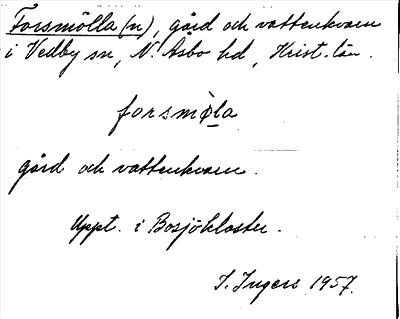 Forsmölla (n), gård och vattenkvarn
i Vedby sn, N. Åsbo hd, Krist. län.
forsmò̱la
gård och vattenkvarn.
Uppt. i Bosjökloster.
I. Ingers 1957.